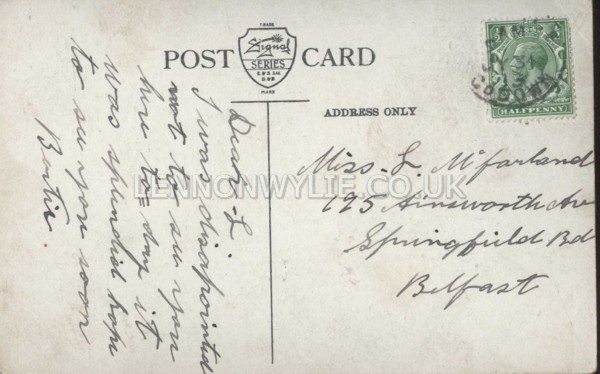 TRADE
Signal
SERIES
E.D.S. Ltd.
D & B
MARK
POST CARD
HALFPENNY
CO DOWN
ADDRESS ONLY
Dear L
I was disapointed
not to see you
here to-day it
was splendid hope
to see you soon
Bertie.
Miss L McFarland
195 Ainsworth Av
Springfield Rd
Belfast
LENNONWYLIE.CO.UK